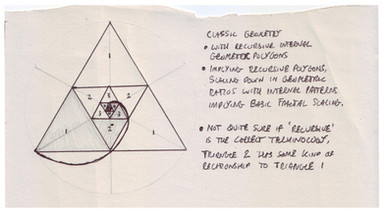 CLASSIC GEOMETRY
• WITH RECURSIVE INTERNAL
GEOMETER POLYGONS
• IMPLYING RECURSIVE POLYGONS,
SCALING DOWN IN GEOMETRIC
RATIOS WITH INTERNAL PATTERNS
IMPLYING BASIC FRACTAL SCALING.
• NOT QUITE SURE IF 'RECURSIVE'
IS THE CORRECT TERMINOLOGY,
TRIANGLE 2 HAS SOME KIND OF
RELATIONSHIP TO TRIANGLE 1
1
2 2
1 2 1